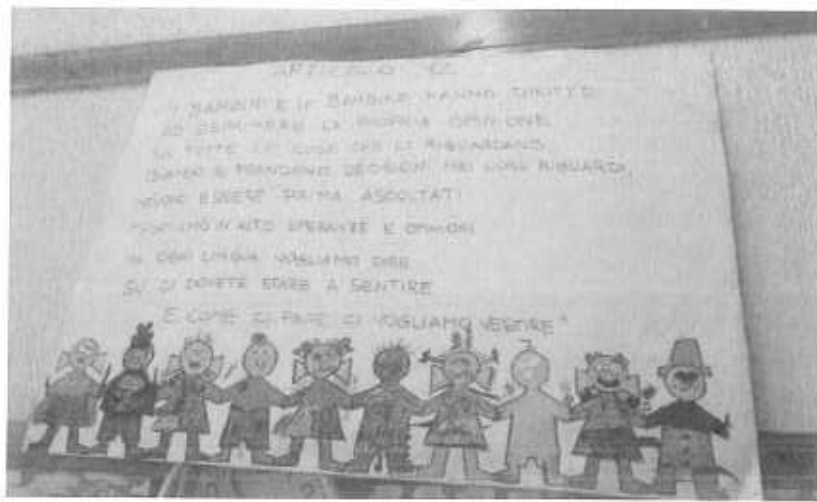 ARTICOLO 12
I BAMBINI E LE BAMBINE HANNO DIRITTO
AD ESPRIMERE LA PROPRIA OPINIONE
SU TUTTE LE COSE CHE LI RIGUARDANO.
QUANDO SI PRENDONO DECISIONI NEI LORO RIGUARDI,
ESSERE PRIMA ASCOLTATI
IN ALTO SPERANZE E OPINIONI
IN OGNI LINGUA VOGLIAMO DIRE
SU CI DOVETE STARE A SENTIRE
E COME CI PARE CI VOGLIAMO VESTIRE"